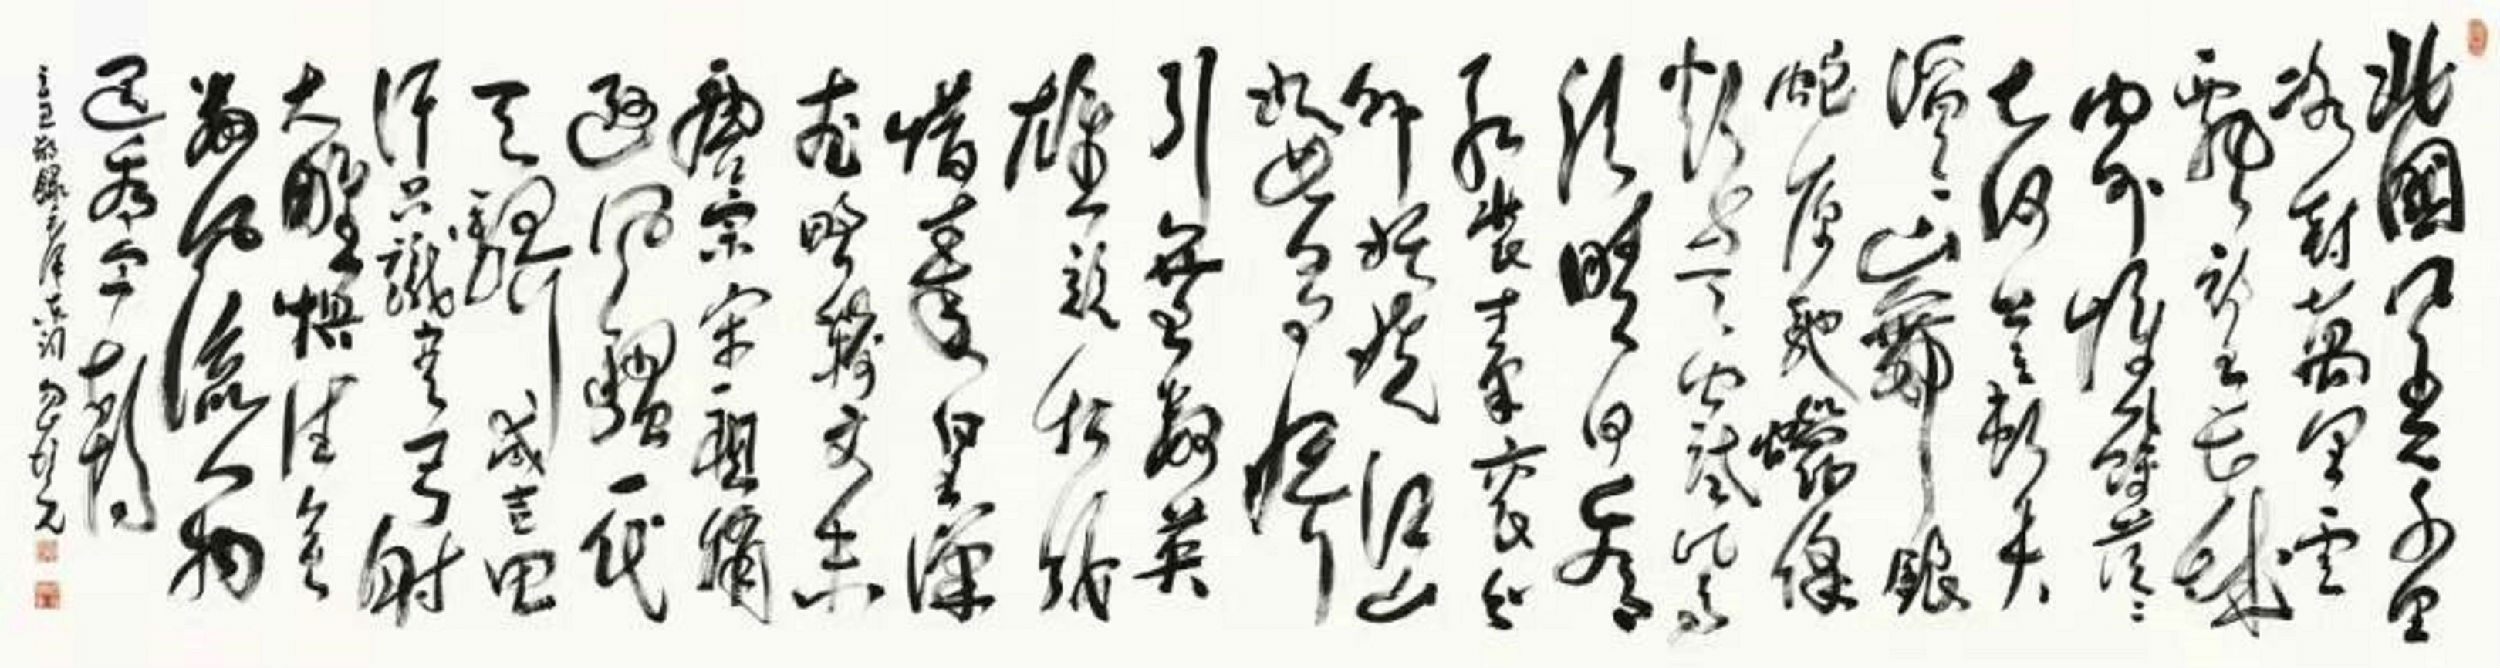 北國風光千里
冰封萬里雪
飄望長城
內外惟餘莽〻
大河上下頓失
滔〻山舞銀
蛇原馳蠟像
欲與天公試比高
須晴日看
紅裝素裹分
外妖嬈江山
如此多嬌
引無數英
雄競折腰
惜秦皇漢
武略輸文采
唐宗宋祖稍
遜風騷一代
天驕成吉思
汗只識彎弓射
大雕俱往矣
數風流人物
還看今朝
敬錄毛澤東詞